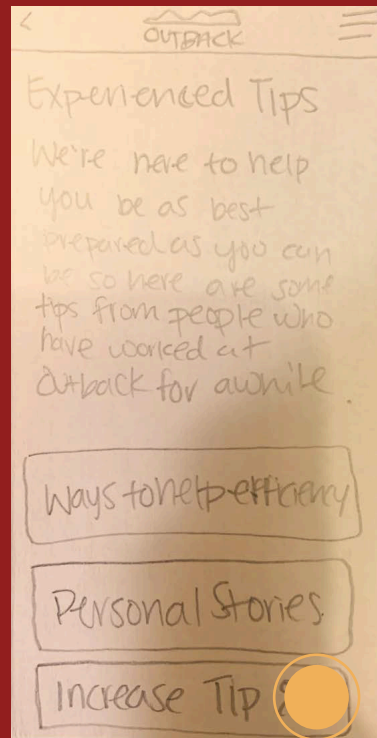 <
OUTBACK
Experienced Tips
We're here to help
you be as best
prepared as you can
be so here are some
tips from people who
have worked at
Outback for awhile.
Ways to help efficiency
Personal Stories
Increase Tip